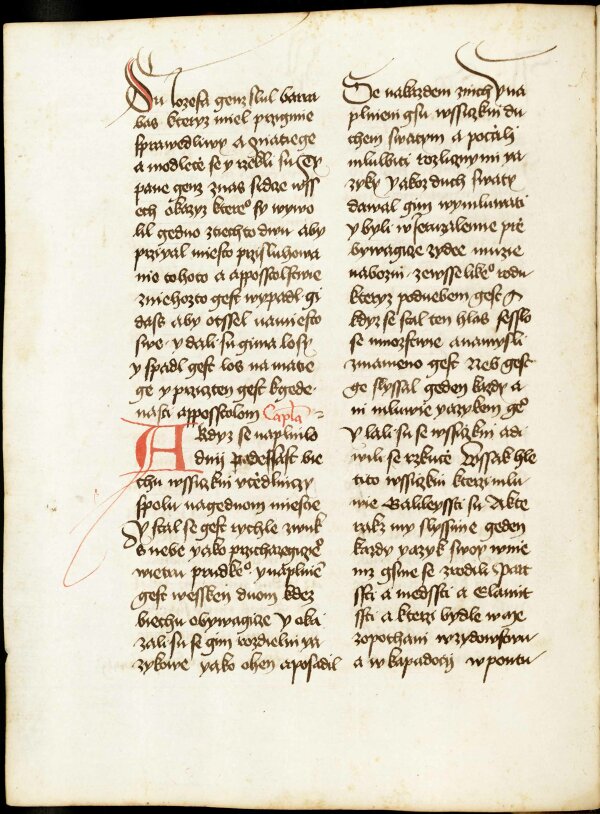 Su Iozefa genz slul barra
bas kteryz miel przigmie
sprawedliwy a Matiege
a modlecē se y rzekli su Ty
pane genz znas srdze wss
ech okazyz ktereᵒ sy wywo
lil gedno ztiechto dwu aby
przyyal miesto przisluhowa
nie tohoto a apposstolstwie
zniehozto gest wypadl gi
dass aby otssel namiesto
swe y dali su gima losy
y spadl gest los na matie
ge y przicten gest kgede
nasti apposstolom Capla
A kdyz se naplnilo
dnij padesat bie
chu wssickni vczedlniczy
spolu nagednom miestie
Y stal se gest rychle zwuk
s nebe yako przichazegiczieᵒ
wietru prudkeᵒ ynaplnie
gest wessken duom kdez
biechu obywagicze Y oka
zali su se gim rozdielni ya
zykowe yako ohen aposadil
Se nakazdem znich yna
plnieni gsu wssickni du
chem swatym a poczali
mluwiti rozlicznymi ya
zyky yakoz duch swaty
dawal gim wymluwati
y byli w Ieruzaleme prze
bywagicze zydee muzie
nabozni zewsse likeᵒ rodu
kteryz podnebem gest A
kdyz se stal ten hlas sesslo
se mnozstwie anamysli
zmateno gest Neb gest
ge slyssal geden kazdy a
ni mluwie yazykem geᵒ
Y lali su se wssickni adi
wili se rzkuce Wssak hle
tito wssickni kterzi mlu
wie Galileyssci su Akte
rakz my slyssime geden
kazdy yazyk swoy wnie
mz gsme se zrodili Part
ssci a medssci a Elamit
ssci a kterzi bydle w me
zopothani w zydowstwu
a w kapadocij w pontu